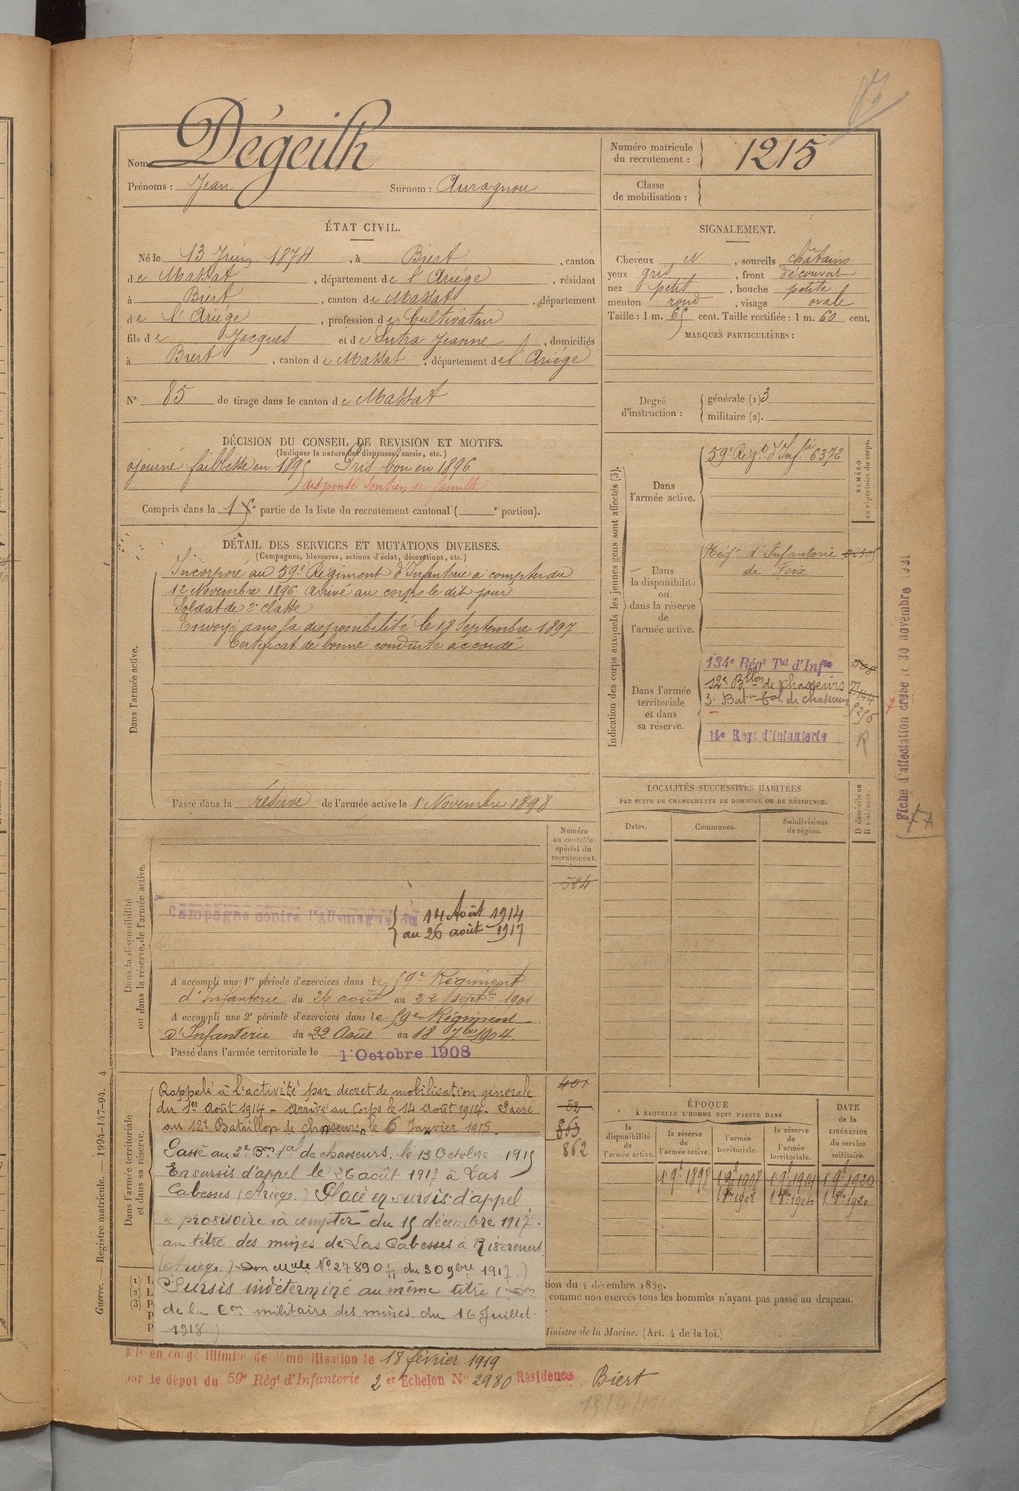 Nom Dégeilh
Prénoms : Jean Surnom : Auragnou
Numéro matricule du recrutement : 1215
Classe de mobilisation :
ÉTAT CIVIL.
Né le 13 Juin 1874, à Biert, canton
de Massat, département de l'Ariége, résidant
à Biert, canton de Massat, département
de l'Ariége, profession de Cultivateur
fils de Jacques et de Sutra Jeanne, domiciliés
à Biert, canton de Massat, département de l'Ariége
N° 85 de tirage dans le canton de Massat
SIGNALEMENT.
Cheveux N, sourcils châtains
yeux gris, front découvert
nez petit, bouche petite
menton rond, visage ovale
Taille : 1 m. cent. Taille rectifiée : 1 m. 60 cent.
MARQUES PARTICULIÈRES :
Degré d'instruction : générale (1) 3
militaire (2).
DÉCISION DU CONSEIL DE REVISION ET MOTIFS.
(Indiquer la nature des dispenses, sursis, etc.)
ajourné faiblesse en 1895 Pris bon en 1896
dispensé soutien de famille
Compris dans la 1e partie de la liste du recrutement cantonal ( e portion).
DÉTAIL DES SERVICES ET MUTATIONS DIVERSES.
(Campagnes, blessures, actions d'éclat, décorations, etc.)
Dans l'armée active.
Incorporé au 59e Régiment d'Infanterie à compter du
Novembre 1896 Arrivé au corps le dit jour
Soldat de 2e classe
Envoyé dans la disponibilité le 18 Septembre 1897
Certificat de bonne conduite accordé
Passé dans la réserve de l'armée active le 1 Novembre 1898
Indication des corps auxquels les jeunes gens sont affectés (3).
NUMÉRO au répertoire du corps.
Dans l'armée active.
59e Régt d'Infie 6372
Dans la disponibilité ou dans la réserve de l'armée active.
Régt d'Infanterie
de Foix
Dans l'armée territoriale et dans sa réserve.
134e Régt Tal d'Infie
12e Bllon de chasseurs
3e Baton Tal de chasseurs
14e Régt d'Infanterie
R
Fiche d'affectation créée le 30 novembre 1921
LOCALITÉS SUCCESSIVES HABITÉES
PAR SUITE DE CHANGEMENTS DE DOMICILE OU DE RÉSIDENCE.
Dates.
Communes.
Subdivisions de région.
D domicile ou R résidence.
Numéro au contrôle spécial du recrutement.
Dans la disponibilité ou dans la réserve de l'armée active.
Campagne contre l'Allemagne du 14 Août 1914
au 26 août 1917
A accompli une 1re période d'exercices dans le 59e Régiment
d'Infanterie du 26 août au 22 septe 1901
A accompli une 2e période d'exercices dans le 59e Régiment
d'Infanterie du 22 Août au 18 7bre 1904
Passé dans l'armée territoriale le 1 Octobre 1908
Dans l'armée territoriale et dans sa réserve.
863
862
Rappelé à l'activité par décret de mobilisation générale
du 1er Août 1914 - Arrivé au Corps le 14 Août 1914. Passé
au 12e Bataillon de chasseurs le 6 Janvier 1915.
Passé au 3e Bon Tal de chasseurs, le 13 Octobre 1915
En sursis d'appel le 26 août 1917 à Las
Cabesses (Ariège.) Placé en sursis d'appel
provisoire à compter du 15 décembre 1917
au titre des mines de Las Cabesses à Rivérenert
(Ariège.) Don Mlle N° 27890 du 30 9bre 1917.)
Sursis indéterminé au même titre (Don
de la Con militaire des mines du 16 Juillet
1918)
ÉPOQUE
À LAQUELLE L'HOMME DOIT PASSER DANS
la disponibilité de l'armée active.
la réserve de l'armée active.
l'armée territoriale.
la réserve de l'armée territoriale.
DATE de la LIBÉRATION du service militaire.
tion du 4 décembre 1889.
comme non exercés tous les hommes n'ayant pas passé au drapeau.
Ministre de la Marine. (Art. 4 de la loi.)
Mis en congé illimité de démobilisation le 18 février 1919
par le dépôt du 59e Régt d'Infanterie 2 e Echelon N° 2980 Résidence Biert
Guerre. — Registre matricule. — 1994-147-94. 4